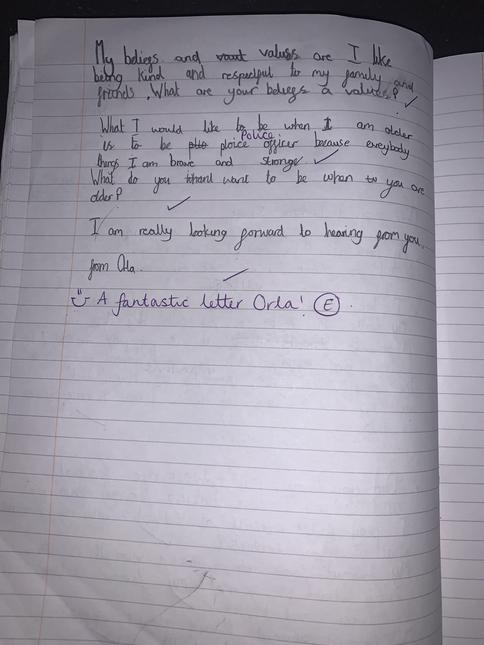 My beliegs and vaut valuss are I like
being kind and respectful to my family and
friends. What are your beliegs a values?
What I would like to be when I am older
Police
is to be plio ploice officer because everybody
things I am brave and stronge
What do you whant want to be when to you are
older?
I am really looking forward to hearing from you.
from Orla.
A fantastic letter Orla! E